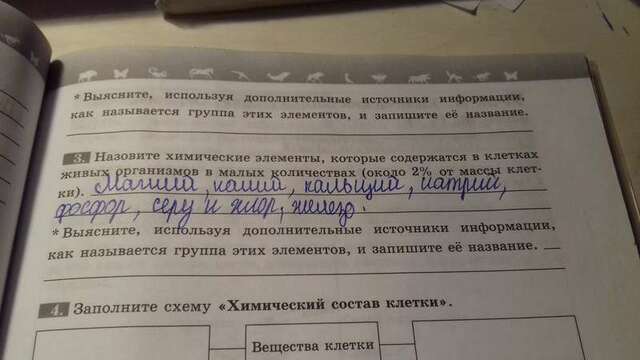 * Выясните, используя дополнительные источники информации,
как называется группа этих элементов, и запишите её название.
3. Назовите химические элементы, которые содержатся в клетках
живых организмов в малых количествах (около 2% от массы клет-
ки). Магний, калий, кальций, натрий,
фосфор, серу и хлор, железо.
* Выясните, используя дополнительные источники информации,
как называется группа этих элементов, и запишите её название.
4. Заполните схему «Химический состав клетки».
Вещества клетки